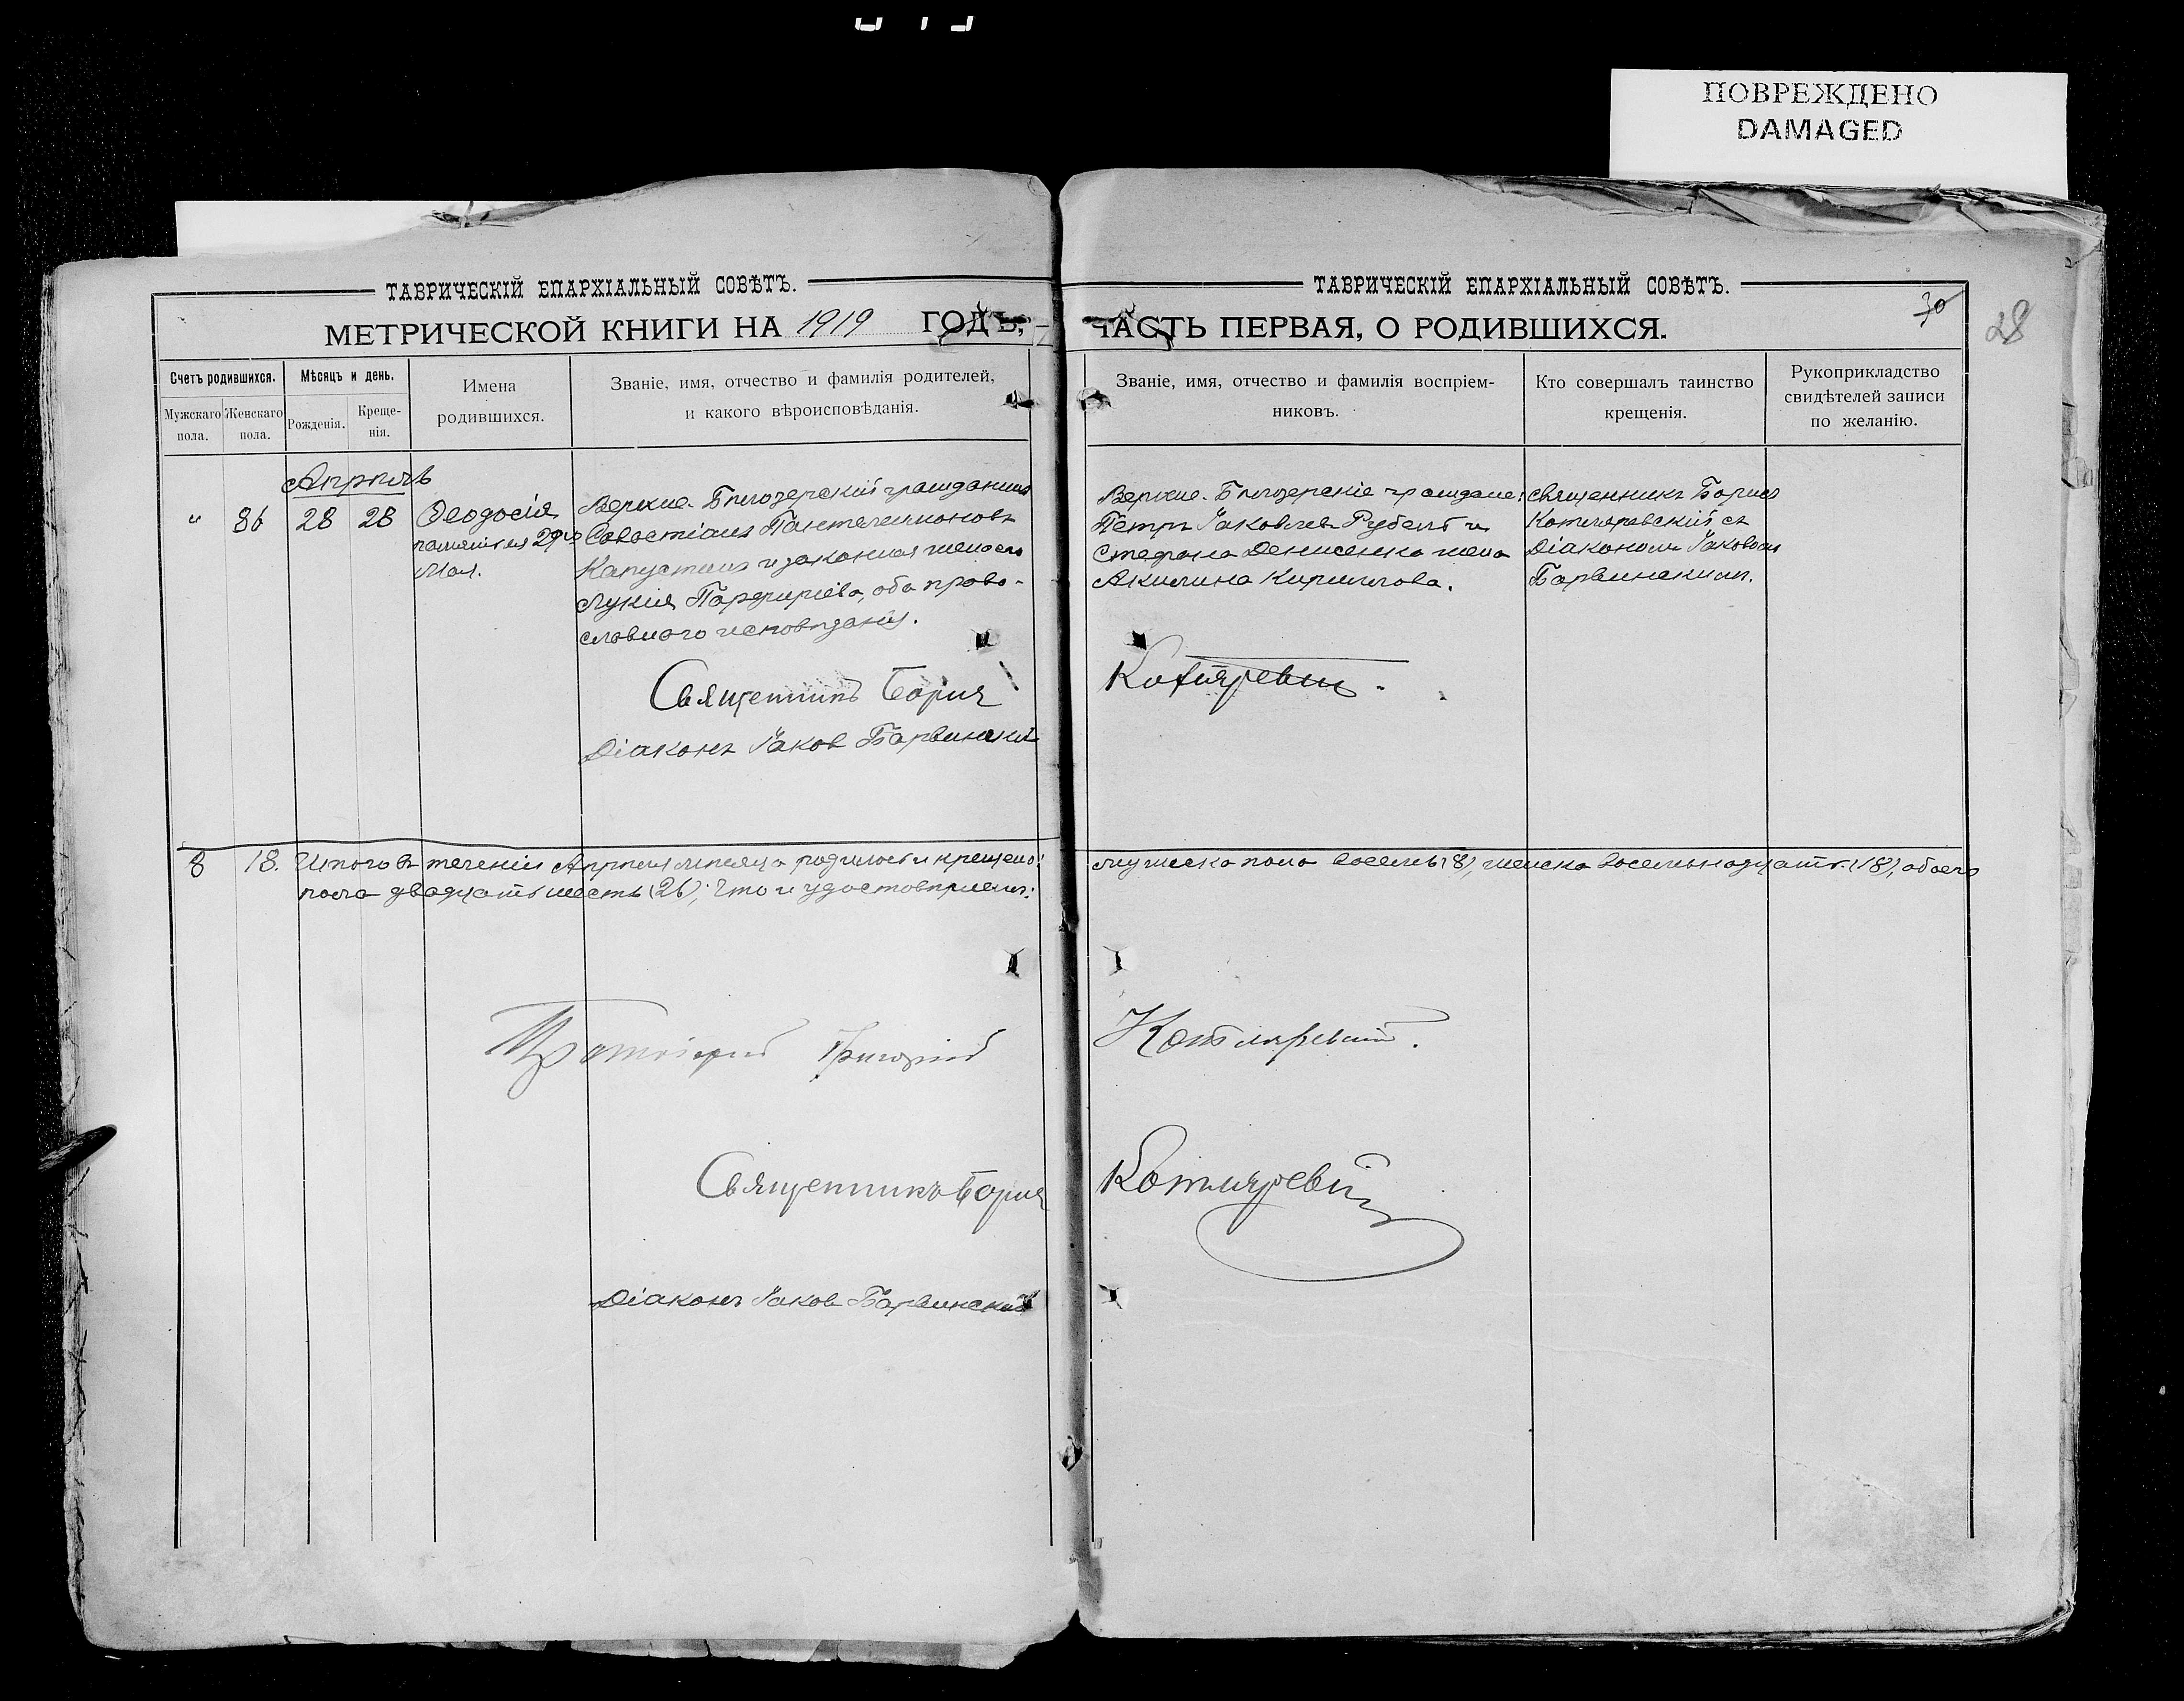 ПОВРЕЖДЕНО
DAMAGED
ТАВРИЧЕСКІЙ ЕПАРХІАЛЬНЫЙ СОВѢТЪ.
МЕТРИЧЕСКОЙ КНИГИ НА 1919 ГОДЪ,
Счетъ родившихся.
Мужскаго пола.
Женскаго пола.
Мѣсяцъ и день.
Рожденія.
Креще-
нія.
Имена
родившихся.
Званіе, имя, отчество и фамилія родителей,
и какого вѣроисповѣданія.
Апрѣль
" 86 28 28
Ѳеодосія
память ея 29го
Мая.
Верхне-Бѣлозерскій гражданинъ
Савостіанъ Пантелеимоновъ
Капустинъ и законная жена его
Лукія Парфиріева, оба право-
славнаго исповѣданія.
Священникъ Борисъ
Діаконъ Іаковъ Барвинскій
8 18. Итого въ теченіи Апрѣля мѣсяца родилось и крещено:
пола двадцать шесть (26), Что и удостовѣряемъ:
Протоіерей Григорій
Священникъ Борисъ
Діаконъ Іаковъ Барвинскій
ТАВРИЧЕСКІЙ ЕПАРХІАЛЬНЫЙ СОВѢТЪ.
30
28
ЧАСТЬ ПЕРВАЯ, О РОДИВШИХСЯ.
Званіе, имя, отчество и фамилія воспріем-
никовъ.
Кто совершалъ таинство
крещенія.
Рукоприкладство
свидѣтелей записи
по желанію.
Верхне-Бѣлозерскіе граждане:
Петръ Іаковлевъ Рубель и
Стефана Денисенко жена
Акилина Кириллова.
Священникъ Борисъ
Котляревскій съ
Діакономъ Іаковомъ
Барвинскимъ.
Котляревскій.
мужеска пола восемь (8), женска восемьнадцать (18), обоего
Котляревскій.
Котляревскій